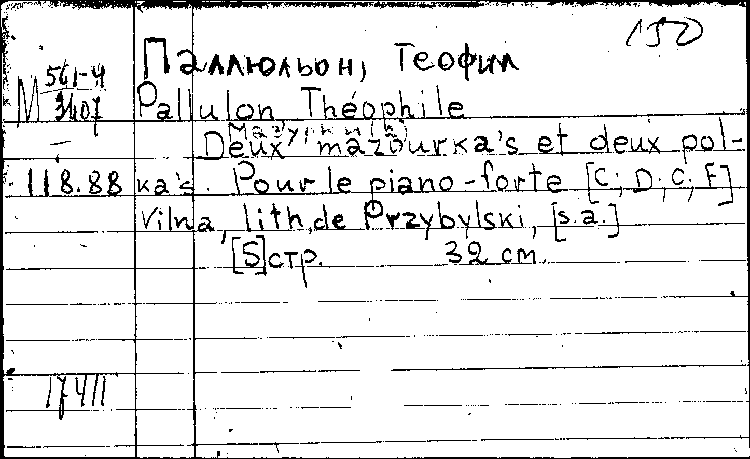 150
Паллюльон, Теофил
М 561-4
3407
Pallulon Théophile
Deux mazourka's et deux pol-
118.88 ka's. Pour le piano-forte [C; D; C; F]
Vilna, lith. de Przybylski, [s.a.]
[5] стр. 32 cm.
17411